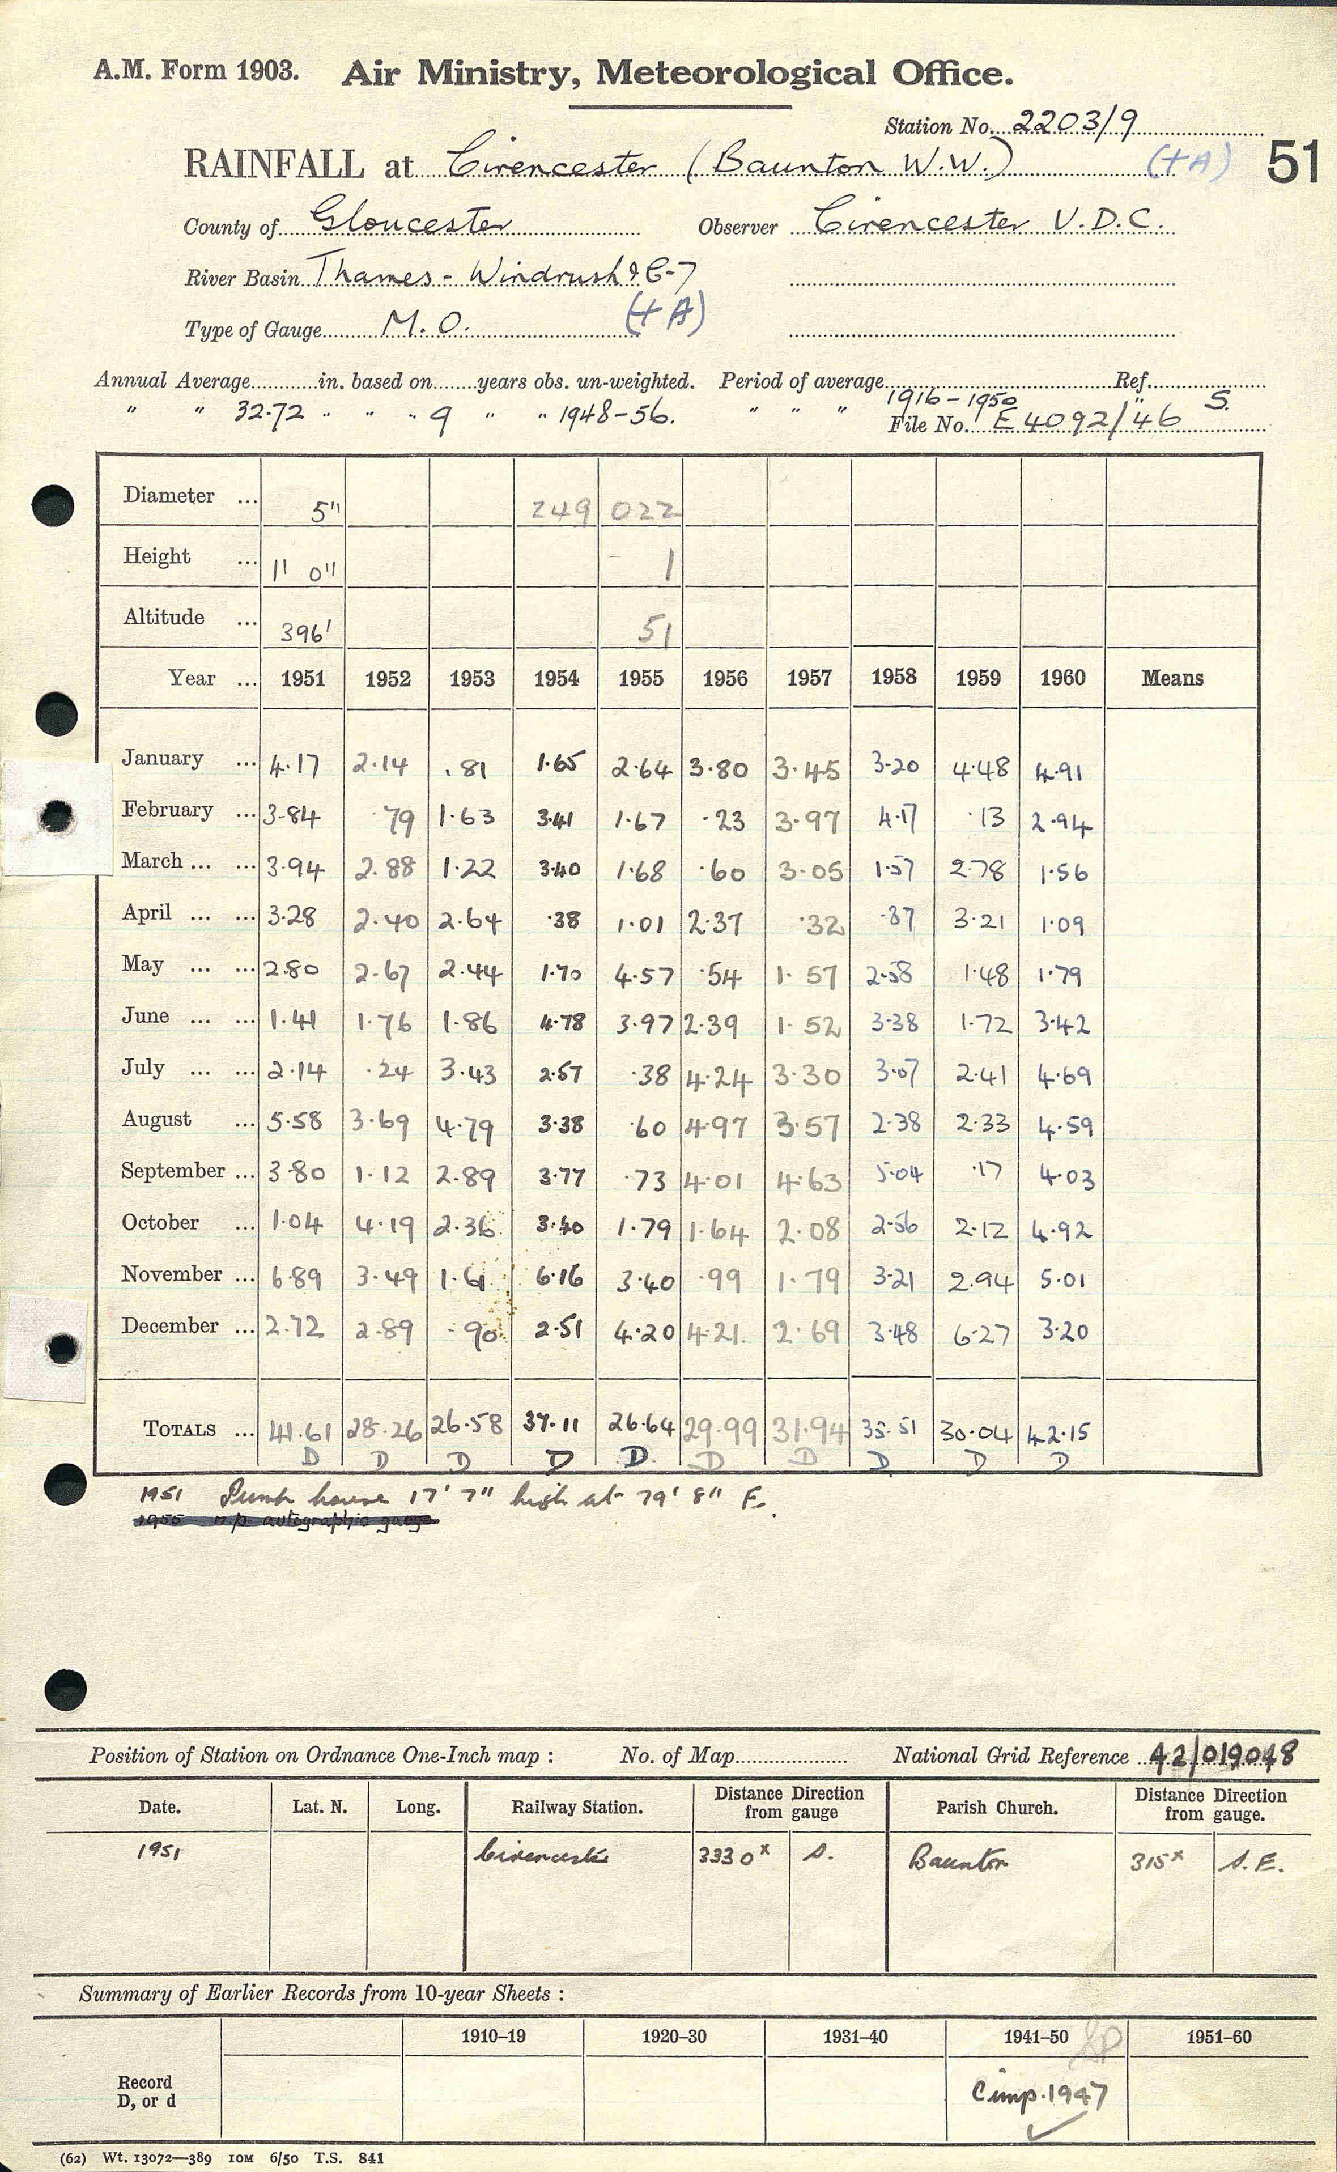 A.M. Form 1903. Air Ministry, Meteorological Office.
Station No. 2203/9
RAINFALL at Cirencester (Baunton W.W.) (+A) 51
County of Gloucester Observer Cirencester U.D.C.
River Basin Thames - Windrush & C-7
Type of Gauge M.O. (+A)
Annual Average in. based on years obs. un-weighted. Period of average Ref.
" " 32.72 " " " 9 " " 1948-56. " " " 1916-1950 " S.
File No. E 4092/46
Diameter ... 5" 249 022
Height ... 1' 0" 1
Altitude ... 396' 51
Year ... 1951 1952 1953 1954 1955 1956 1957 1958 1959 1960 Means
January ... 4.17 2.14 .81 1.65 2.64 3.80 3.45 3.20 4.48 4.91
February ... 3.84 .79 1.63 3.41 1.67 .23 3.97 4.17 .13 2.94
March ... ... 3.94 2.88 1.22 3.40 1.68 .60 3.05 1.57 2.78 1.56
April ... ... 3.28 2.40 2.64 .38 1.01 2.37 .32 .87 3.21 1.09
May ... ... 2.80 2.67 2.44 1.70 4.57 .54 1.57 2.58 1.48 1.79
June ... ... 1.41 1.76 1.86 4.78 3.97 2.39 1.52 3.38 1.72 3.42
July ... ... 2.14 .24 3.43 2.57 .38 4.24 3.30 3.07 2.41 4.69
August ... 5.58 3.69 4.79 3.38 .60 4.97 3.57 2.38 2.33 4.59
September ... 3.80 1.12 2.89 3.77 .73 4.01 4.63 5.04 .17 4.03
October ... 1.04 4.19 2.36 3.40 1.79 1.64 2.08 2.56 2.12 4.92
November ... 6.89 3.49 1.61 6.16 3.40 .99 1.79 3.21 2.94 5.01
December ... 2.72 2.89 .90 2.51 4.20 4.21 2.69 3.48 6.27 3.20
TOTALS ... 41.61 28.26 26.58 37.11 26.64 29.99 31.94 35.51 30.04 42.15
D D D D D D D D D D
1951 Pump house 17' 7" high at 79' 8" E.
1955 autographic gauge
Position of Station on Ordnance One-Inch map : No. of Map National Grid Reference 42/019048
Date. Lat. N. Long. Railway Station. Distance from gauge Direction Parish Church. Distance from gauge. Direction
1951 Cirencester 3330ˣ S. Baunton 315ˣ S.E.
Summary of Earlier Records from 10-year Sheets :
1910–19 1920–30 1931–40 1941–50 1951–60
Record D, or d Cimp. 1947
(62) Wt. 13072—389 10M 6/50 T.S. 841